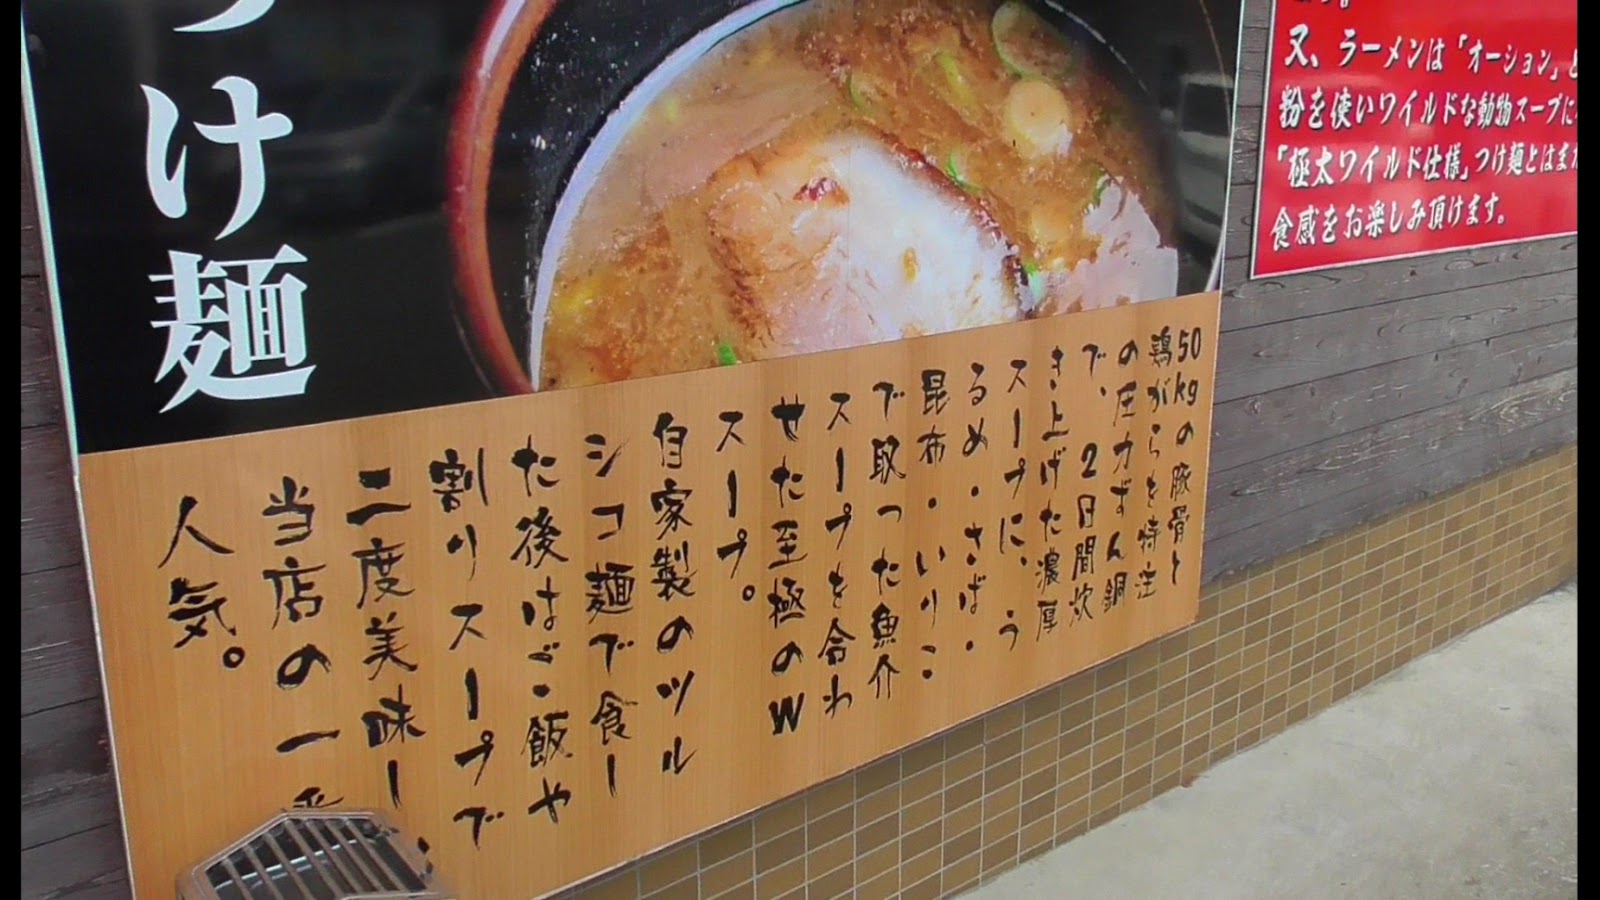 つけ麺
50kgの豚骨と
鶏がらを特注
の圧力ずん銅
で、2日間炊
き上げた濃厚
スープに、う
るめ・さば・
昆布・いりこ
で取った魚介
スープを合わ
せた至極のW
スープ。
自家製のツル
シコ麺で食し
た後はご飯や
割りスープで
二度美味し
当店の一番
人気。
又、ラーメンは「オーション」と
粉を使いワイルドな動物スープに
「極太ワイルド仕様」つけ麺とはまた
食感をお楽しみ頂けます。